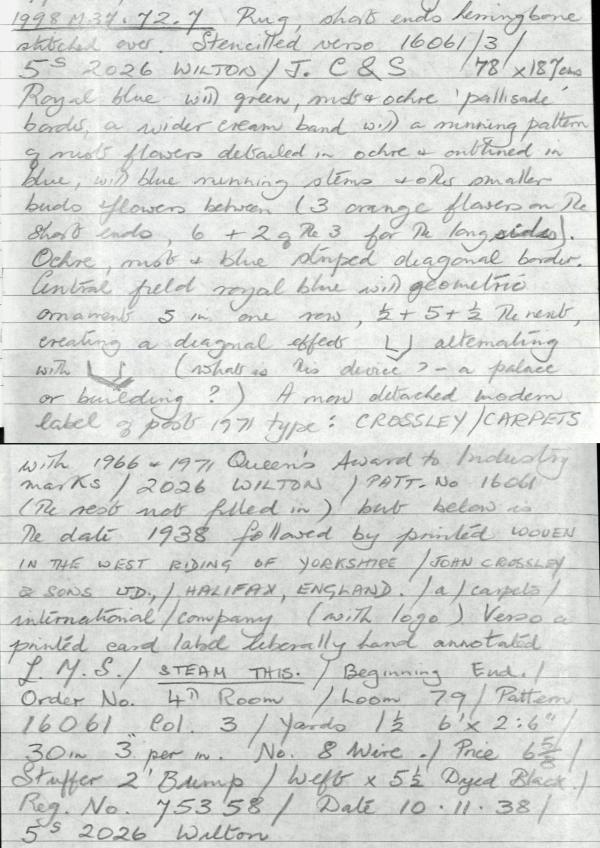 1998 M.37.72.7 Rug, short ends herringbone
stitched over. Stencilled verso 16061/3/
5s 2026 WILTON / J. C & S 78 x 187cms
Royal blue with green, rust & ochre 'pallisade'
border, a wider cream band with a running pattern
of rust flowers detailed in ochre & outlined in
blue, with blue running stems & other smaller
buds & flowers between (3 orange flowers on the
short ends, 6 + 2 of the 3 for the long sides).
Ochre, rust & blue striped diagonal border.
Central field royal blue with geometric
ornament 5 in one row, ½ + 5 + ½ the next,
creating a diagonal effect alternating
with (what is this device? - a palace
or building?) A now detached modern
label of post 1971 type: CROSSLEY/CARPETS
with 1966 & 1971 Queen's Award to Industry
marks / 2026 WILTON / PATT. No 16061
(The rest not filled in) but below is
the date 1938 followed by printed WOVEN
IN THE WEST RIDING OF YORKSHIRE / JOHN CROSSLEY
& SONS LTD., / HALIFAX, ENGLAND. / a / carpets /
international / company (with logo) Verso a
printed card label liberally hand annotated
L.M.S. / STEAM THIS. / Beginning End. /
Order No. 4th Room / Loom 79 / Pattern
16061 Col. 3 / Yards 1½ 6' x 2:6" /
30in 3" per in. No. 8 Wire. / Price 6⅝ /
Stuffer 2' Bump / Weft x 5½ Dyed Black. /
Reg. No. 75358 / Date 10.11.38 /
5s 2026 Wilton